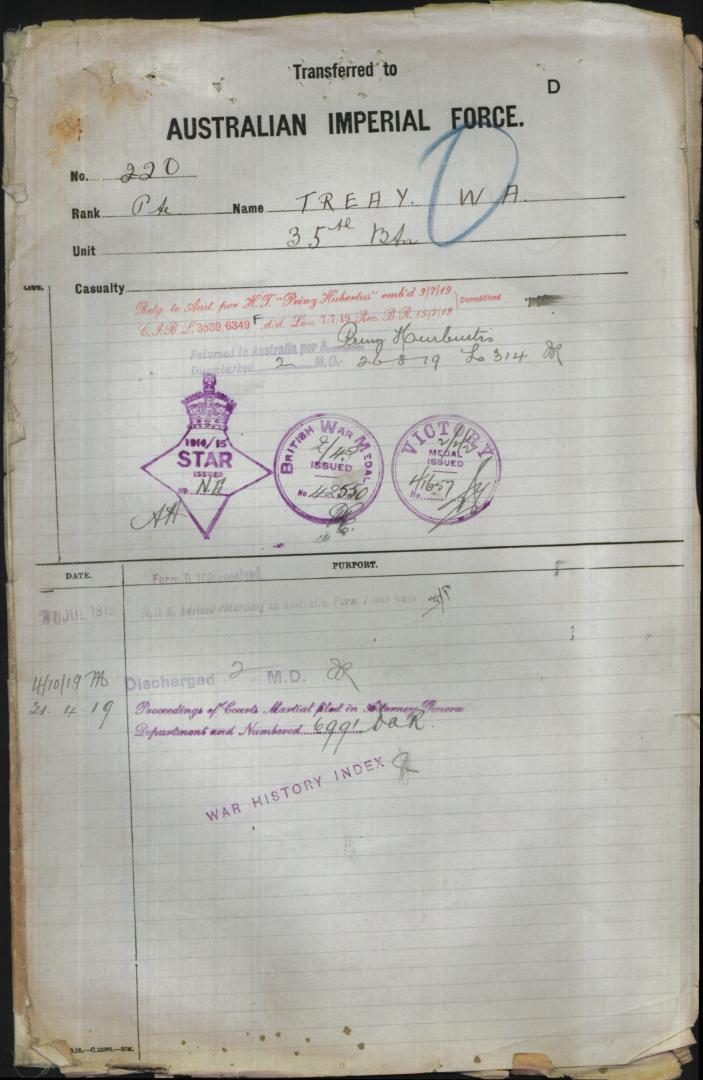 Transferred to
D
AUSTRALIAN IMPERIAL FORCE.
No. 220
Rank Pte Name TREAY. W A.
Unit 35th Btn
LIST.
Casualty
Retg. to Aust. per H.T. "Prinz Hubertus" emb'd 3/7/19 Demobilised
C.I.B.L. 3589/6349 F. d/d. Lon. 7.7.19 Rec. B.R. 15/7/19
Returned to Australia per
Disembarked 2 M.D. 26-8-19 Lo 314
1914/15
STAR
ISSUED
NE
AH
BRITISH WAR MEDAL
ISSUED
No 42550
VICTORY
MEDAL
ISSUED
No. 41657
DATE.
PURPORT.
Form B 103 received
JUL 1919
N.O.K. Advised returning to Australia, Form 1 and
4/10/19 Discharged 2 M.D.
21.4.19 Proceedings of Courts Martial filed in Attorney Genera
Department and Numbered 6991
WAR HISTORY INDEX